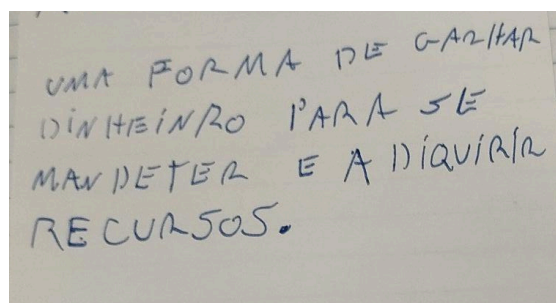 UMA FORMA DE GARHAR
DINHEINRO PARA SE
MANDETER E ADIQUIRIR
RECURSOS.